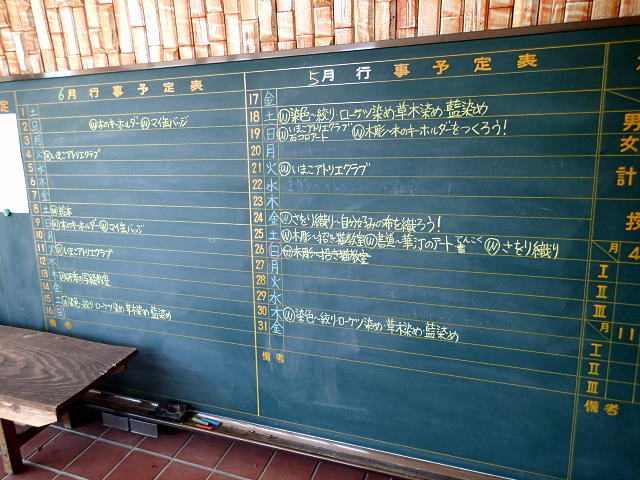 6月 行 事 予 定 表
5月 行 事 予 定 表
定
1 土
2 日 Ⓦ木のキーホルダー Ⓦマイ缶バッジ
3 月
4 火 Ⓦいまこアトリエクラブ
5 水
6 木
7 金
8 土 Ⓦ絵本
9 日 Ⓦ木のキーホルダー Ⓦマイ缶バッジ
10 月
11 火 Ⓦいまこアトリエクラブ
12 水
13 木
14 金
15 土 染色~絞り・ローケツ染め・草木染め・藍染め
16 日
備 考
17 金
18 土 Ⓦ染色~絞り・ローケツ染め 草木染め・藍染め
19 日 Ⓦいまこアトリエクラブ 石コロアート Ⓦ木彫~木のキーホルダーをつくろう!
20 月
21 火 Ⓦいまこアトリエクラブ
22 水
23 木
24 金 Ⓦさをり織り~自分好みの布を織ろう!
25 土 Ⓦ木彫~招き猫教室 Ⓦ書道~華汀のアート Ⓦさをり織り
26 日 木彫~招き猫教室
27 月
28 火
29 水
30 木 Ⓦ染色~絞り・ローケツ染め・草木染め・藍染め
31 金
備 考
男
女
計
月 4
Ⅰ
Ⅱ
Ⅲ
月 11
Ⅰ
Ⅱ
Ⅲ
備 考